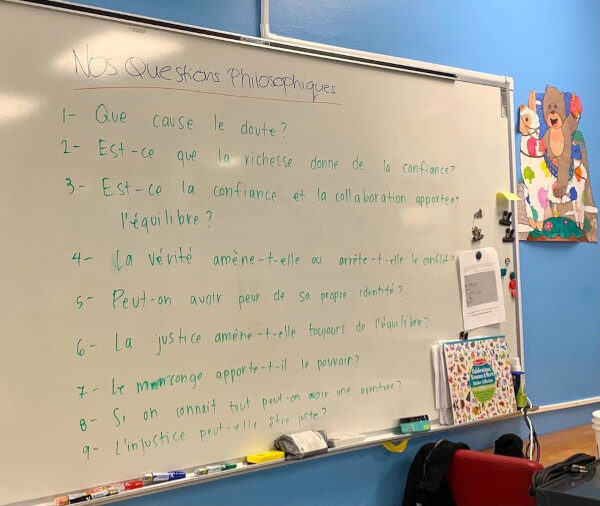 Nos Questions Philosophiques
1- Que cause le doute?
2- Est-ce que la richesse donne de la confiance?
3- Est-ce la confiance et la collaboration apportent
l'équilibre?
4- La vérité amène-t-elle ou arrête-t-elle le conflit?
5- Peut-on avoir peur de sa propre identité?
6- La justice amène-t-elle toujours de l'équilibre?
7- Le mensonge apporte-t-il le pouvoir?
8- Si on connait tout peut-on avoir une aventure?
9- L'injustice peut-elle être juste?